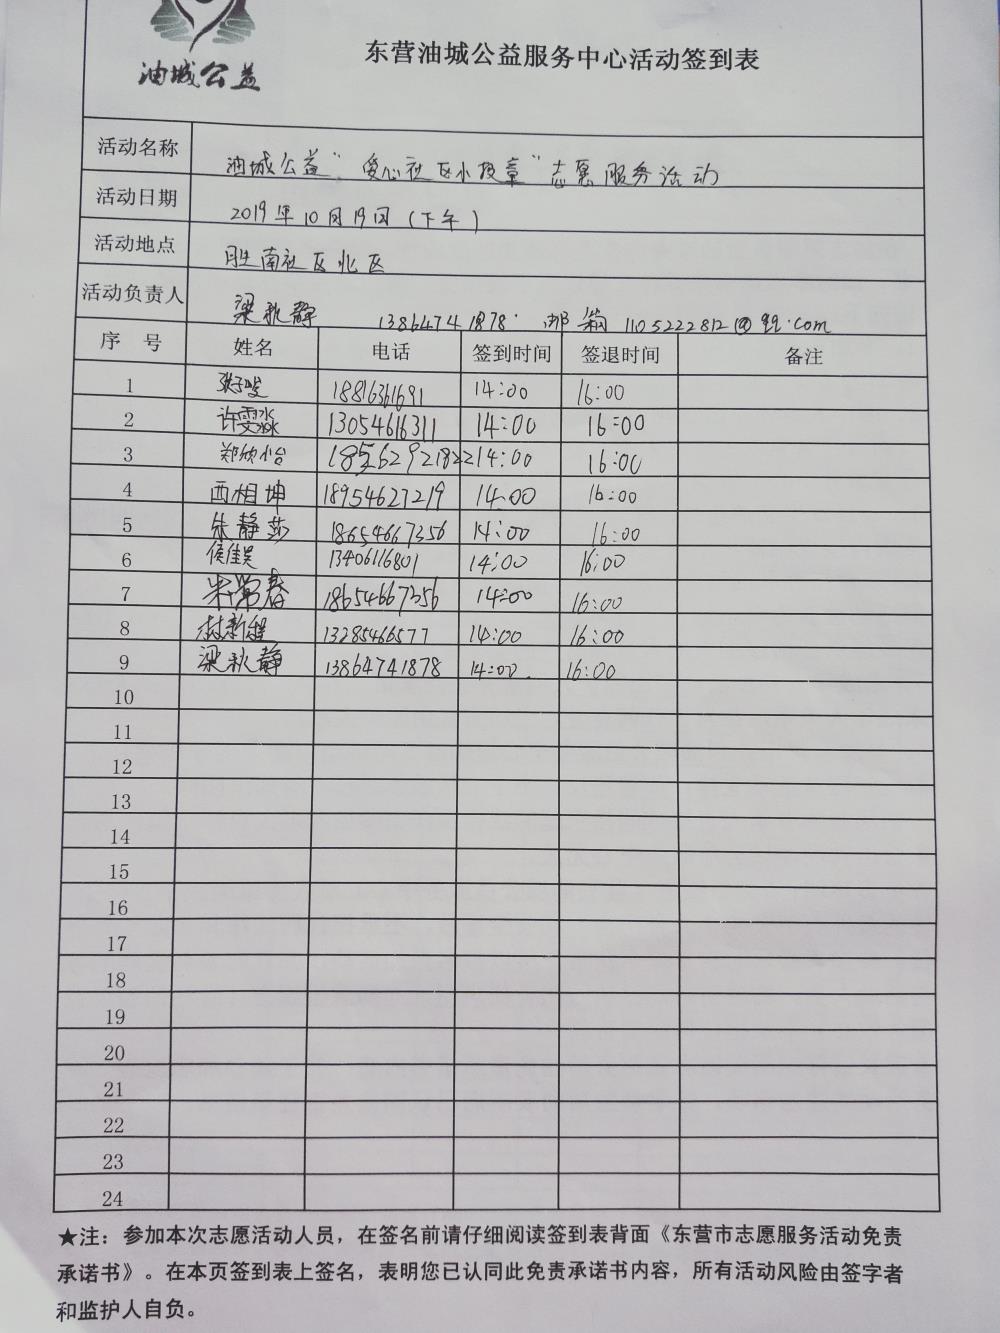 油城公益
东营油城公益服务中心活动签到表
活动名称 油城公益“爱心社区小投章”志愿服务活动
活动日期 2019年10月19日(下午)
活动地点 胜南社区北区
活动负责人 梁秋静 13864741878 邮箱 1105222812@qq.com
序号 姓名 电话 签到时间 签退时间 备注
1 18816361691 14:00 16:00
2 许雯淼 13054616311 14:00 16:00
3 郑欣怡 18562921822 14:00 16:00
4 西相坤 18954627219 14:00 16:00
5 朱静莎 18654667356 14:00 16:00
6 侯佳昊 13406116801 14:00 16:00
7 宋常春 18654667356 14:00 16:00
8 林新程 13285466577 14:00 16:00
9 梁秋静 13864741878 14:00 16:00
10
11
12
13
14
15
16
17
18
19
20
21
22
23
24
★注：参加本次志愿活动人员，在签名前请仔细阅读签到表背面《东营市志愿服务活动免责
承诺书》。在本页签到表上签名，表明您已认同此免责承诺书内容，所有活动风险由签字者
和监护人自负。